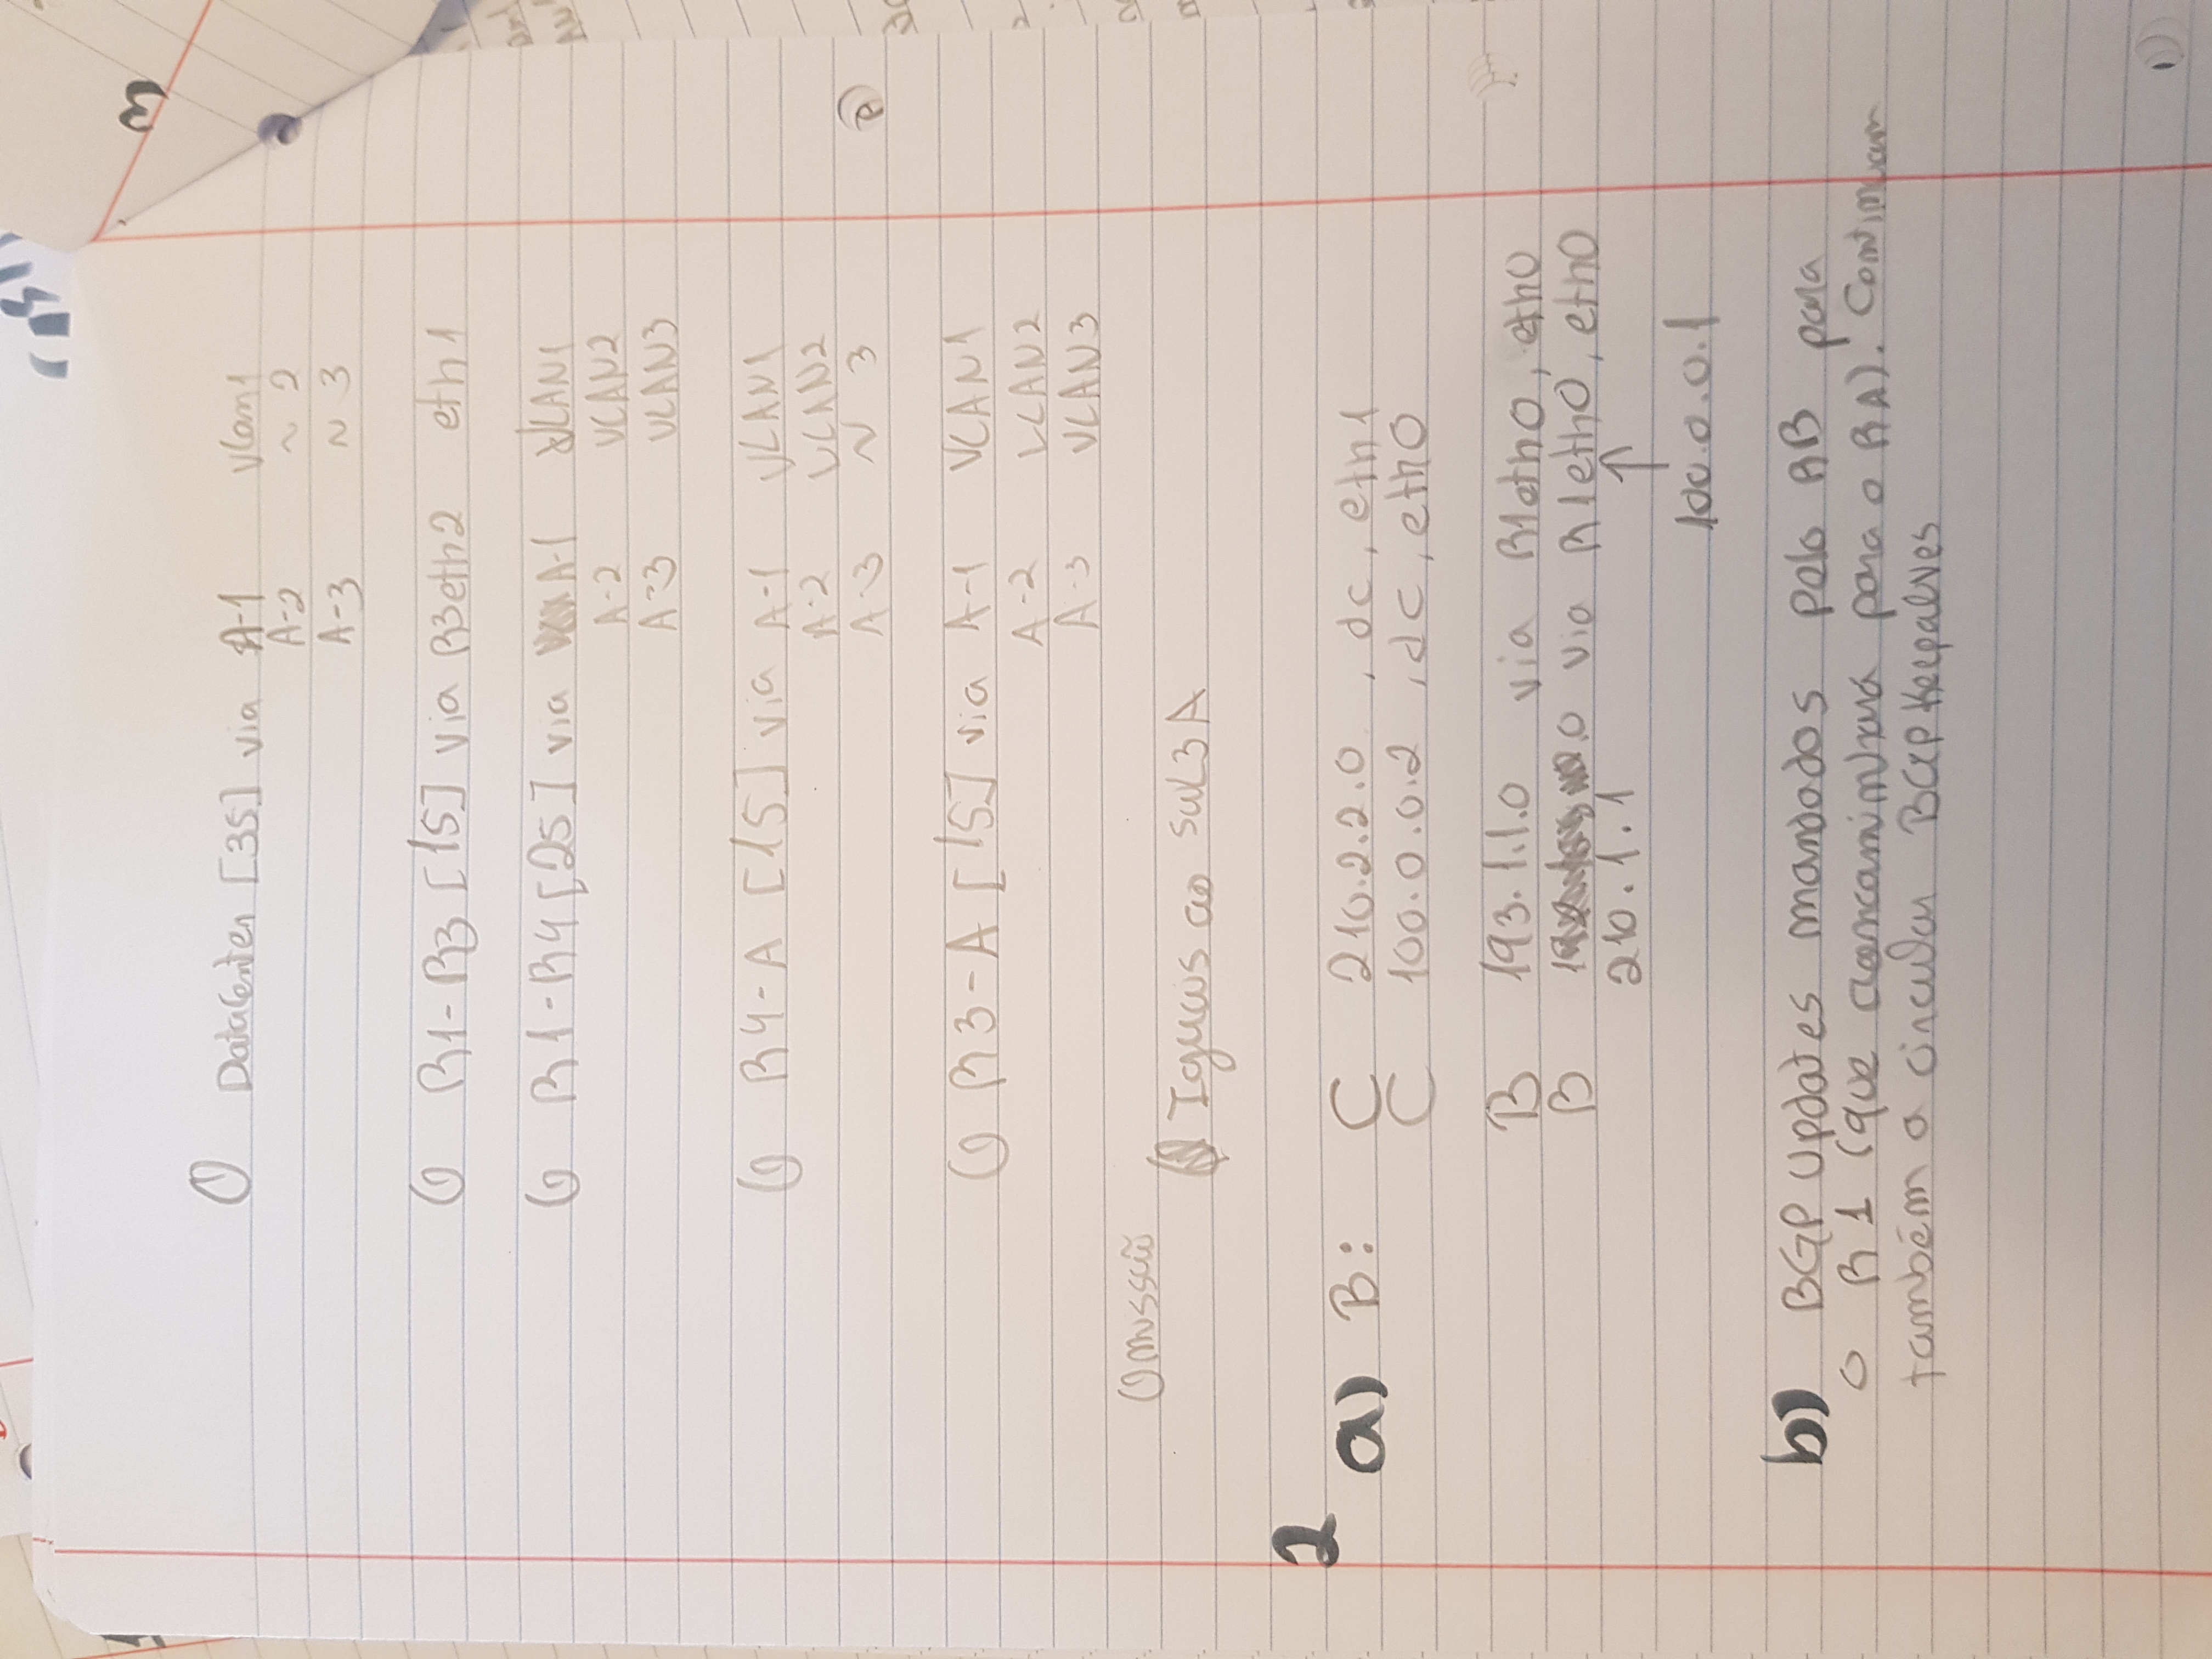 3
O DataCenter [35] via A-1 Vlan1
A-2 ~ 2
A-3 ~ 3
O R1-R3 [15] via R3eth2 eth1
O R1-R4 [25] via A-1 VLAN1
A-2 VLAN2
A-3 VLAN3
O R4-A [15] via A-1 VLAN1
A-2 VLAN2
A-3 ~ 3
O R3-A [15] via A-1 VLAN1
A-2 VLAN2
A-3 VLAN3
Omissão
Iguais ao SWL3A
2
a) B: C 210.2.2.0 , dc, eth1
C 100.0.0.2 , dc, eth0
B 193.1.1.0 via R1eth0, eth0
B .0 via R1eth0, eth0
210.1.1 ↑
100.0.0.1
b) BGP Updates mandados pelo RB para
o R1 (que para o RA). Continuam
também a circular BGP Keepalves